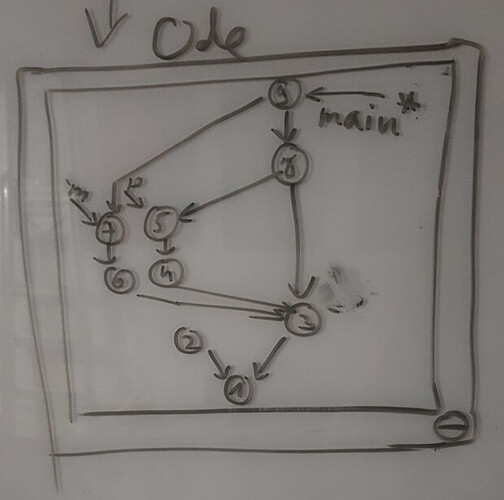 Ode
9
main*
8
7
5
6
4
3
2
1